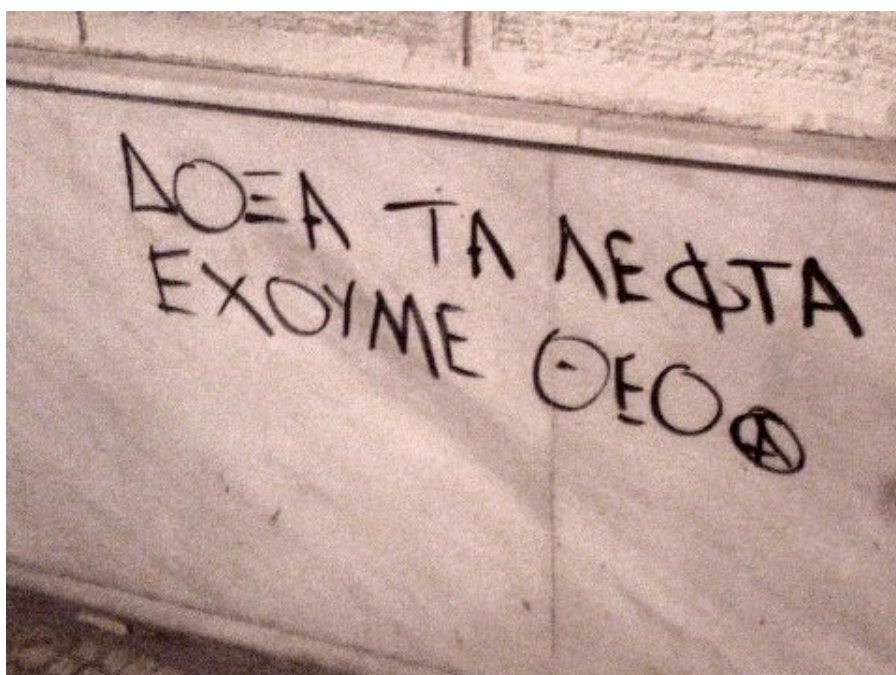 ΔΟΞΑ ΤΑ ΛΕΦΤΑ
ΕΧΟΥΜΕ ΘΕΟ Ⓐ